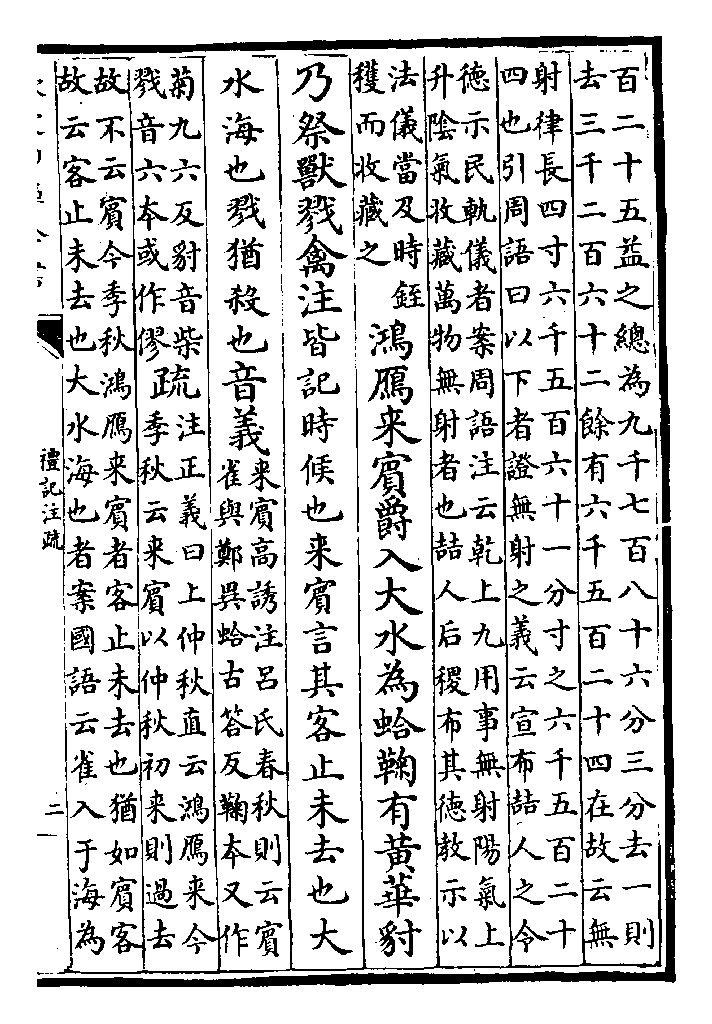 百二十五益之總為九千七百八十六分三分去一則
去三千二百六十二餘有六千五百二十四在故云無
射律長四寸六千五百六十一分寸之六千五百二十
四也引周語曰以下者證無射之義云宣布喆人之令
徳示民軌儀者案周語注云乾上九用事無射陽氣上
升陰氣收藏萬物無射者也喆人后稷布其德教示以
法儀當及時銍
穫而收藏之
鴻鴈来賓爵入大水為蛤鞠有黄華豺
乃祭獸戮禽注皆記時候也来賓言其客止未去也大
水海也戮猶殺也音義
来賓高誘注呂氏春秋則云賓
雀與鄭異蛤古答反鞠本又作
菊九六反豺音柴
戮音六本或作僇
疏
注正義曰上仲秋直云鴻鴈来今
季秋云来賓以仲秋初来則過去
故不云賓今季秋鴻鴈来賓者客止未去也猶如賓客
故云客止未去也大水海也者案國語云雀入于海為
禮記注疏
二